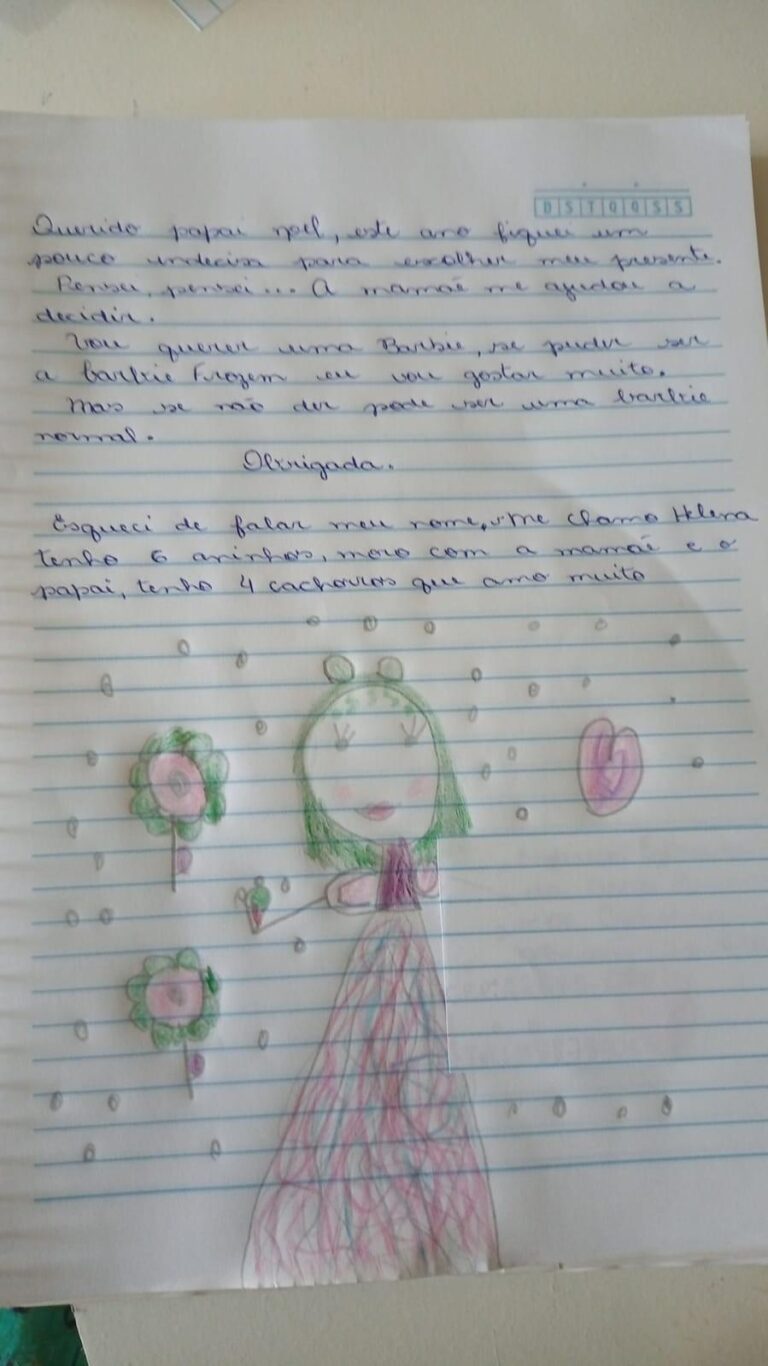 D S T Q Q S S
Querido papai noel, este ano fiquei um
pouco indecisa para escolher meu presente.
Pensei, pensei... A mamãe me ajudou a
decidir.
Vou querer uma Barbie, se puder ser
a barbie Frozem eu vou gostar muito.
Mas se não der pode ser uma barbie
normal.
Obrigada.
Esqueci de falar meu nome, me chamo Helena
tenho 6 aninhos, moro com a mamãe e o
papai, tenho 4 cachorros que amo muito